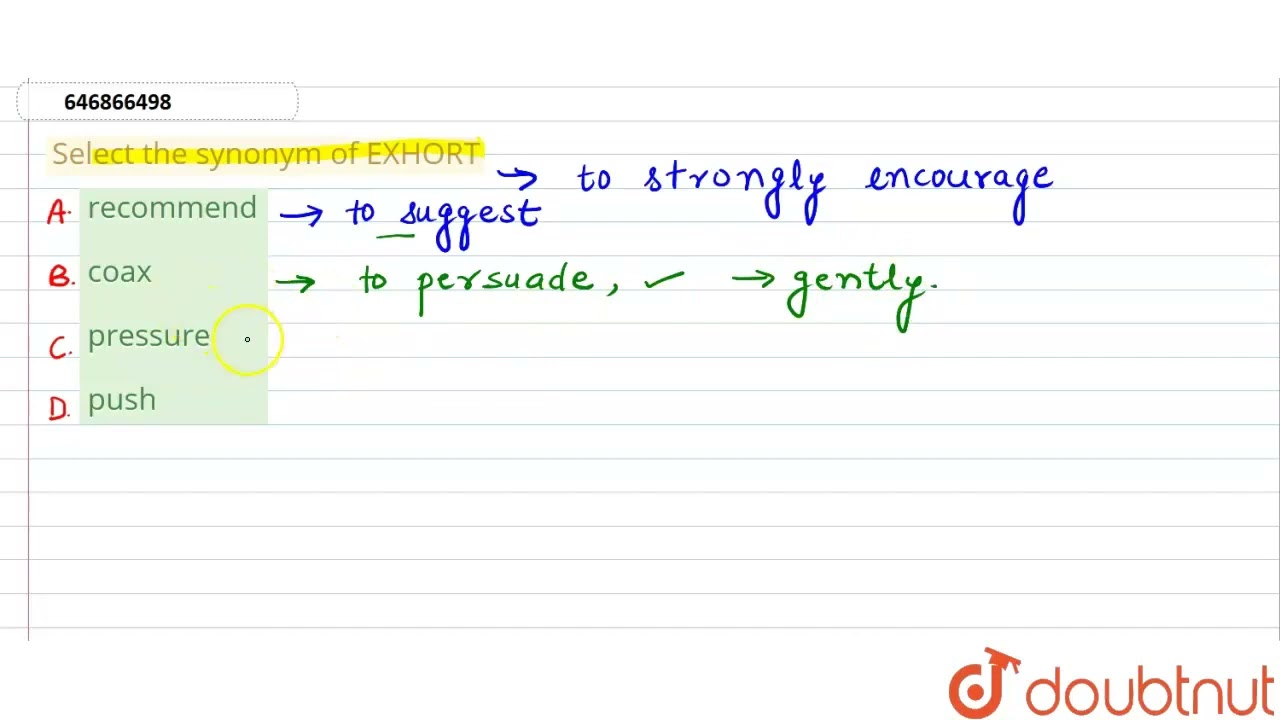 646866498
Select the synonym of EXHORT → to strongly encourage
A. recommend → to suggest
B. coax → to persuade, ✓ → gently.
C. pressure
D. push
doubtnut